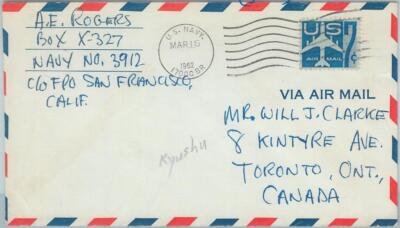 A.E. ROGERS
BOX X-327
NAVY NO. 3912
C/O FPO SAN FRANCISCO,
CALIF.
U.S. NAVY
MAR 15
1962
17080 BR.
US
¢
AIR MAIL
VIA AIR MAIL
MR. WILL J. CLARKE
8 KINTYRE AVE.
TORONTO, ONT.,
CANADA
Kyushu